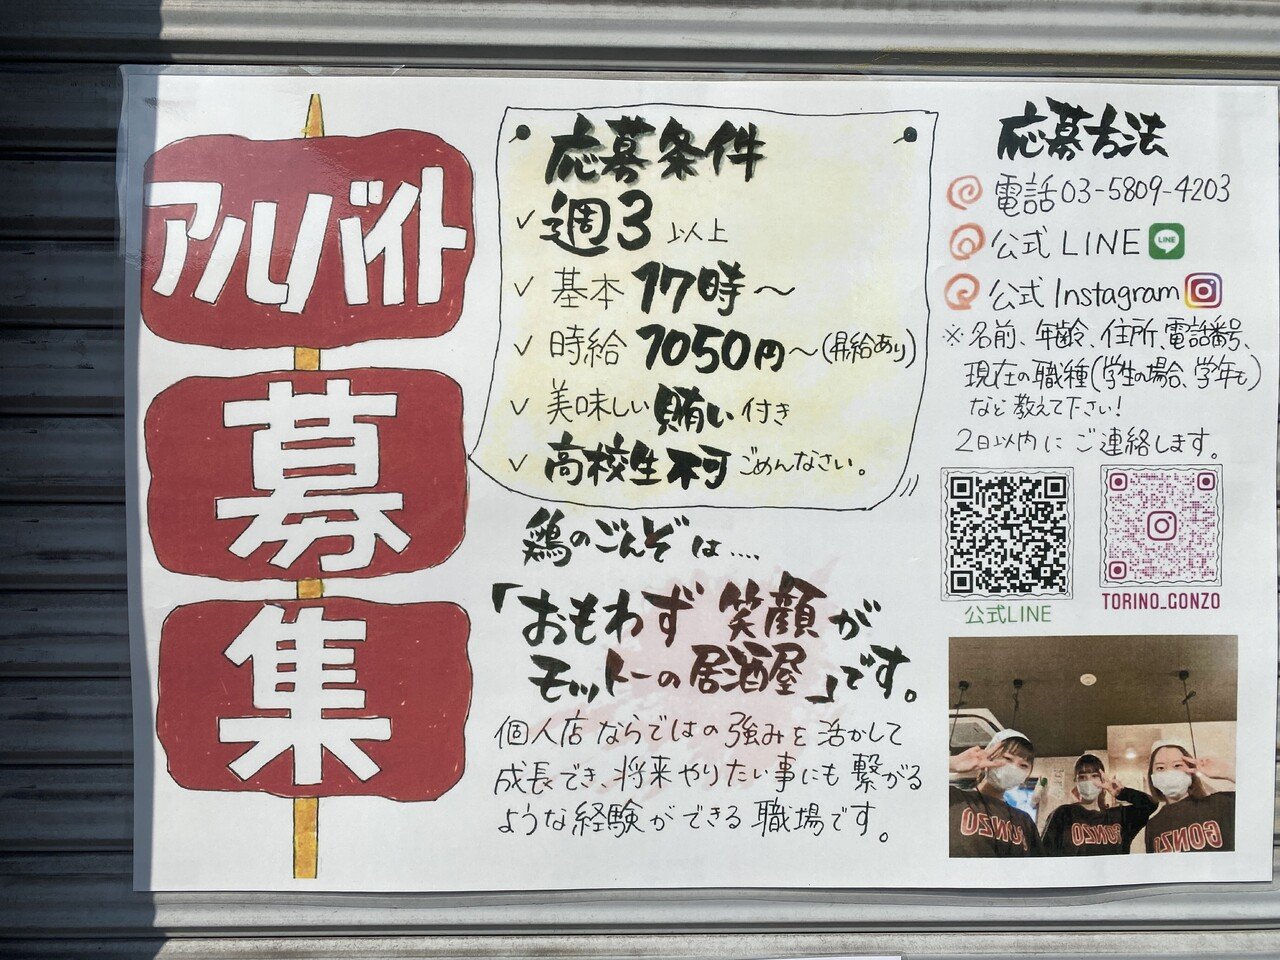 アルバイト
募
集
応募条件
✓ 週3 以上
✓ 基本 17時〜
✓ 時給 1050円〜(昇給あり)
✓ 美味しい賄い付き
✓ 高校生不可ごめんなさい。
鶏のごんぞは....
「おもわず笑顔が
モットーの居酒屋」です。
個人店ならではの強みを活かして
成長でき、将来やりたい事にも繋がる
ような経験ができる職場です。
応募方法
電話03-5809-4203
公式LINE
LINE
公式Instagram
※名前、年齢、住所、電話番号、
現在の職種(学生の場合、学年も)
など教えて下さい!
2日以内にご連絡します。
公式LINE
TORINO_GONZO
GONZO
GONZO
GONZ